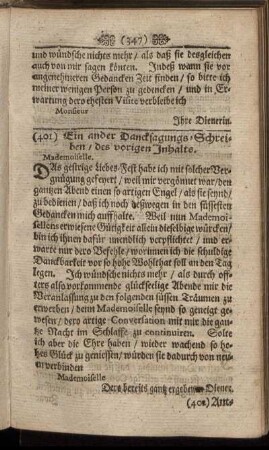 (347)
und wündsche nichts mehr / als daß sie desgleichen
auch von mir sagen könten. Indeß wann sie vor
angenehmeren Gedancken Zeit finden / so bitte ich
meiner wenigen Person zu gedencken / und in Er-
wartung ders ehesten Visite verbleibe ich
Monsieur
Ihre Dienerin.
(401) Ein ander Dancksagungs-Schrei-
ben / des vorigen Inhalts.
Mademoiselle.
DAs gestrige Liebes-Fest habe ich mit solcher Ver-
gnügung gefeyert / weil mir vergönnet war / den
gantzen Abend einen so artigen Engel / als sie seynd /
zu bedienen / daß ich noch deßwegen in den süssesten
Gedancken mich auffhalte. Weil nun Mademoi-
sellens erwiesene Gütigkeit allein dieselbige würcken /
bin ich ihnen dafür unendlich verpflichtet / und er-
warte nur dero Befehle / worinnen ich die schuldige
Danckbarkeit vor so hohe Wolthat soll an den Tag
legen. Ich wündsche nichts mehr / als durch öff-
ters also vorkommende glückselige Abende mir die
Veranlassung zu den folgenden süssen Träumen zu
erwerben / denn Mademoiselle seynd so geneigt ge-
wesen / dero artige Conversation mit mir die gan-
tze Nacht im Schlaffe zu continuiren. Solte
ich aber die Ehre haben / wieder wachend so ho-
hes Glück zu geniessen / würden sie dadurch von neu-
em verbinden
Mademoiselle
Dero bereits gantz ergebenen Diener.
(402) Ant-